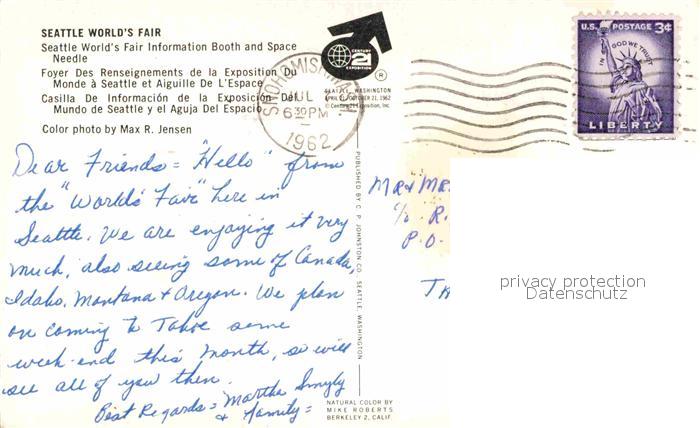 SEATTLE WORLD'S FAIR
Seattle World's Fair Information Booth and Space
Needle
Foyer Des Renseignements de la Exposition Du
Monde à Seattle et Aiguille De L'Espace
Casilla De Información de la Exposición Del
Mundo de Seattle y el Aguja Del Espacio
Color photo by Max R. Jensen
CENTURY
21
EXPOSITION
®
SEATTLE, WASHINGTON
APRIL 21-OCTOBER 21, 1962
© Century 21 Exposition, Inc.
SNOHOMISH
JUL
630PM
1962
U.S. POSTAGE 3¢
IN GOD WE TRUST
LIBERTY
Dear Friends = "Hello" from
the "World's Fair" here in
Seattle. We are enjoying it very
much, also seeing some of Canada,
Idaho, Montana + Oregon. We plan
on coming to Tahoe some
week-end this month, so will
see all of you then.
Best Regards = Martha Smyly
+ Family =
PUBLISHED BY C. P. JOHNSTON CO., SEATTLE, WASHINGTON
NATURAL COLOR BY
MIKE ROBERTS
BERKELEY 2, CALIF.
MR + MR
c/o R.
P.O.
TA
privacy protection
Datenschutz